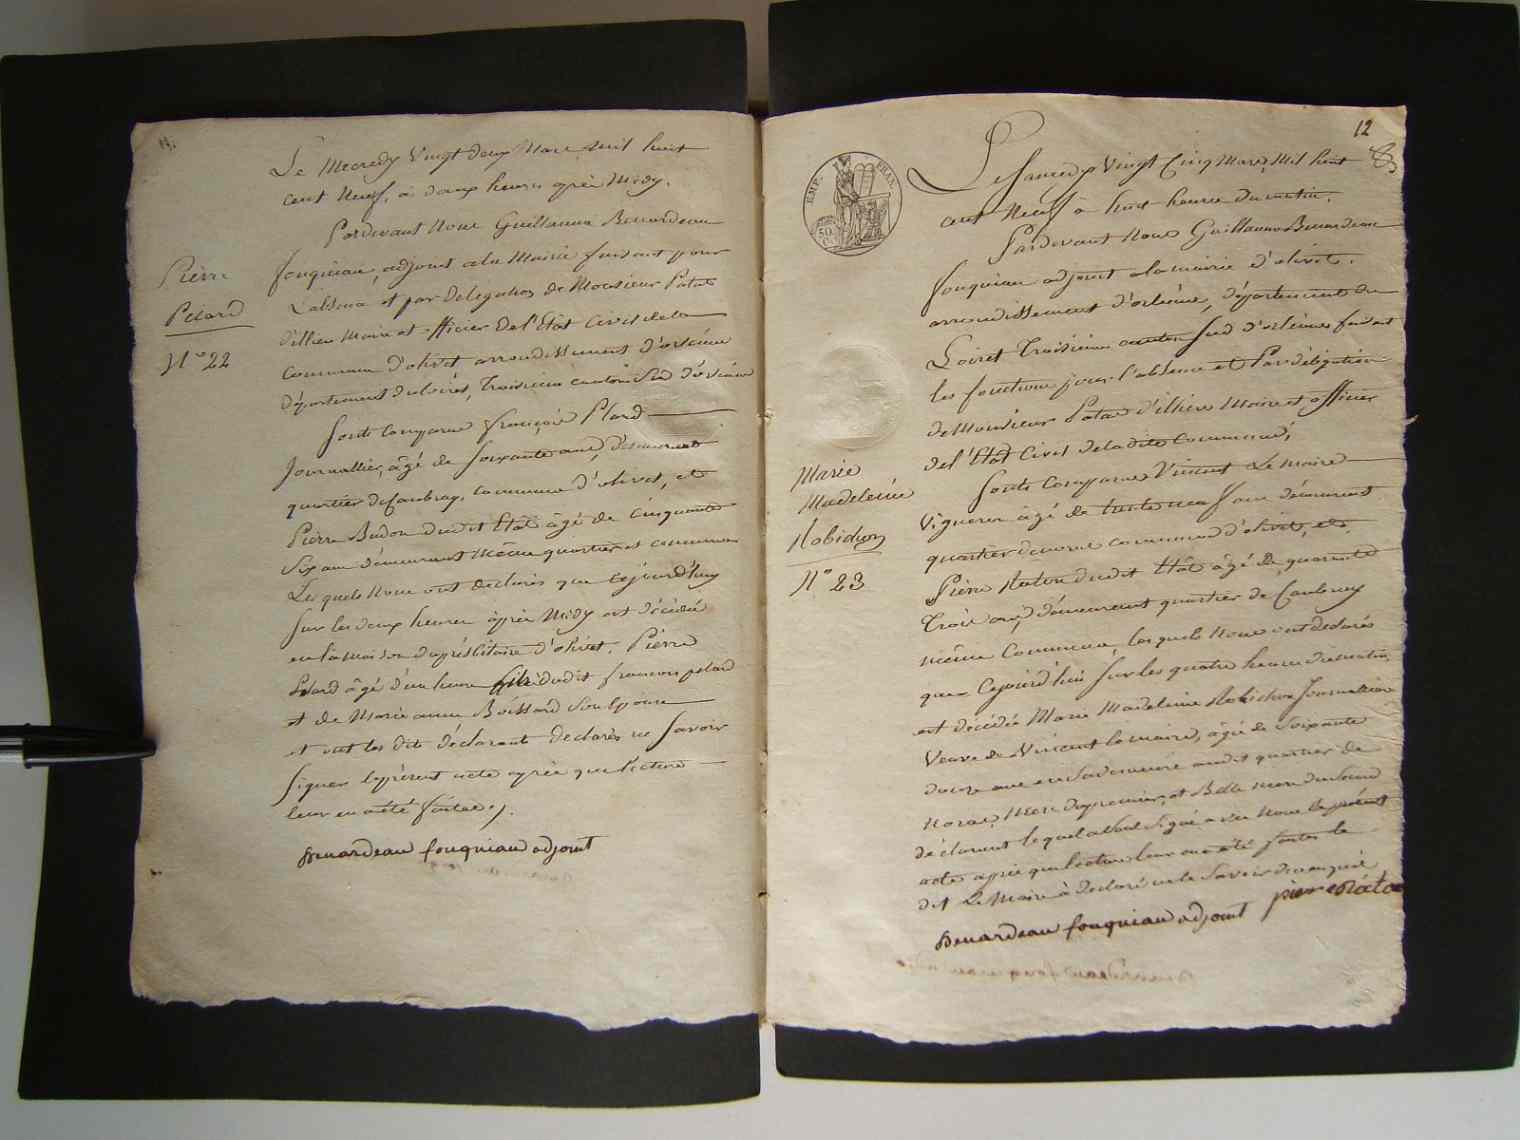 Le Mecredy Vingt deux Mars mil huit
cent Neuf, à deux heures après Midy.
Pardevant Nous Guillaume Benardeau
fouqniau, adjoint ala Mairie faisant pour
L'absence et par delegation de Monsieur Patas
d'illiers Maire et officier del'Etat Civil dela
commune d'olivet arrondissement d'orléans
département du loiret, troisieme canton Sud d'orléans
Sont Comparus françois Plard
Journallier, âgé de soixante ans, demeurant
quartier de Caubray, commune d'olivet, et
Pierre Budon dudit Etat âgé de Cinquante
Six ans demeurant même quartier et commune
Les quels Nous ont declarés que cejourd'huy
Sur les deux heures après Midy est décédé
en la maison dupréslitaire d'olivet. Pierre
Plard âgé d'un heure fils dudit francois pelard
et de Marie anne Boissard Son Epouse
et ont les dits déclarant declarés ne Savoir
Signer leprésent acte après que lecture
leur en a été faitte ./.
Benardeau fouqniau adjoint
Pierre
Pelard
N° 22
12
EMP. FRAN.
50
Le Samedy Vingt Cinq Mars, Mil huit
cent Neuf à huit heures Du matin.
Pardevant Nous Guillaume Benardeau
fouqniau adjoint ala mairie d'olivet.
arrondissement d'orléans, département du
Loiret troisieme canton Sud d'orléans faisant
les fonctions pour l'absence et Par délégation
de Monsieur Patas d'illiers Maire et officier
del'Etat Civil deladite Commune,
Sont Comparus Vincent Le Maire
Vigneron âgé de trente neuf ans demeurant
quartier de noras commune d'olivet, et
Pierre Raton dudit Etat âgé de quarente
trois ans, demeurant quartier de Caubray
même Commune, lesquels Nous ont declarés
que Cejourd'hui Sur les quatre heures du matin,
est décédée Marie Madeleine Robichon Journalliere
Veuve de Vincent lemaire, âgée de Soixante
douze ans en Sa demeure audit quartier de
noras, Mere dupremier, et Belle mere du Second
déclarant lequel a Signé avec Nous le présent
acte après que lecture leur en a été faitte le
dit Le Maire à declaré ne le Savoir de ce enquis
Benardeau fouqniau adjoint pierre Raton
Marie
Madeleine
Robichon
N° 23